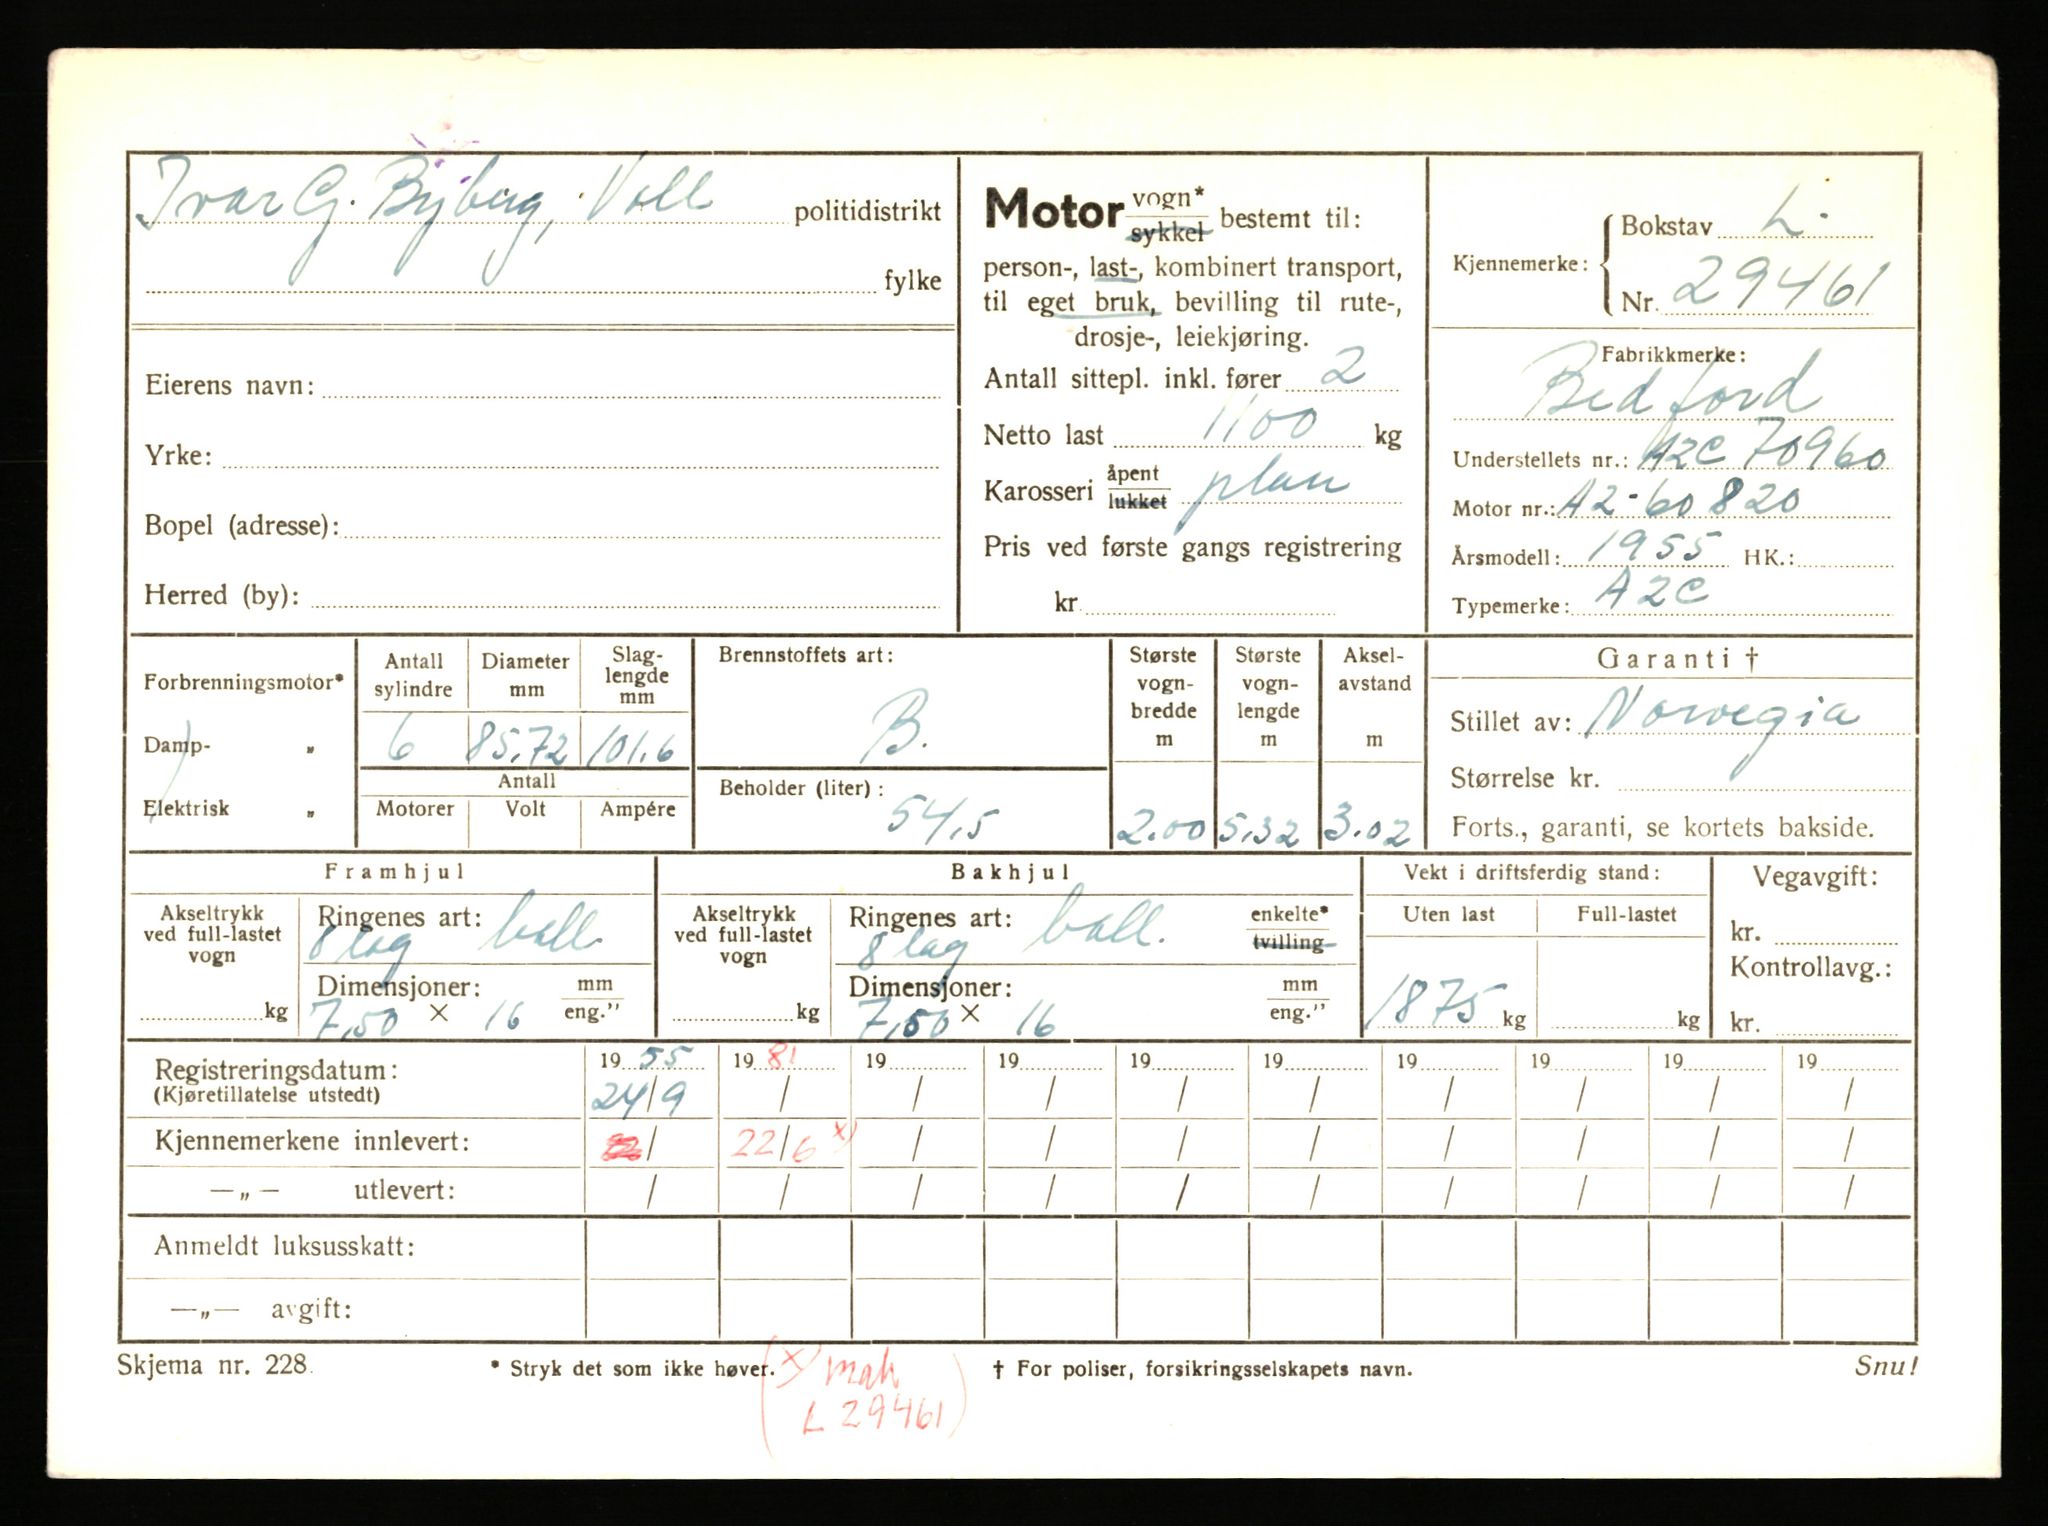 Ivar G. Byberg, Voll politidistrikt
fylke
Eierens navn:
Yrke:
Bopel (adresse):
Herred (by):
Motor vogn*
sykkel bestemt til:
person-, last-, kombinert transport,
til eget bruk, bevilling til rute-,
drosje-, leiekjøring.
Antall sittepl. inkl. fører 2
Netto last 1100 kg
Karosseri åpent
lukket plan
Pris ved første gangs registrering
kr.
Kjennemerke: Bokstav L.
Nr. 29461
Fabrikkmerke:
Bedford
Understellets nr.: A2C 70960
Motor nr.: A2-60820
Årsmodell: 1955 HK.:
Typemerke: A2C
Forbrenningsmotor*
Damp- „
Elektrisk „
Antall sylindre Diameter mm Slag-lengde mm
6 85.72 101.6
Antall
Motorer Volt Ampére
Brennstoffets art:
B.
Beholder (liter):
54,5
Største vogn-bredde m
2.00
Største vogn-lengde m
5.32
Aksel-avstand m
3.02
Garanti †
Stillet av: Norvegia
Størrelse kr.
Forts., garanti, se kortets bakside.
Framhjul
Akseltrykk
ved full-lastet
vogn
kg
Ringenes art:
8 lag ball.
Dimensjoner: mm
eng."
7,50 × 16
Bakhjul
Akseltrykk
ved full-lastet
vogn
kg
Ringenes art: enkelte*
8 lag ball. tvilling
Dimensjoner: mm
eng."
7,50 × 16
Vekt i driftsferdig stand:
Uten last Full-lastet
1875 kg kg
Vegavgift:
kr.
Kontrollavg.:
kr.
Registreringsdatum: 19 55 19 81 19 19 19 19 19 19 19 19
(Kjøretillatelse utstedt) 24/9 / / / / / / / / /
Kjennemerkene innlevert: / 22/6 x) / / / / / / / /
—„— utlevert: / / / / / / / / / /
Anmeldt luksusskatt:
—„— avgift:
Skjema nr. 228. * Stryk det som ikke høver. † For poliser, forsikringsselskapets navn. Snu!
(x) mak
L 29461)